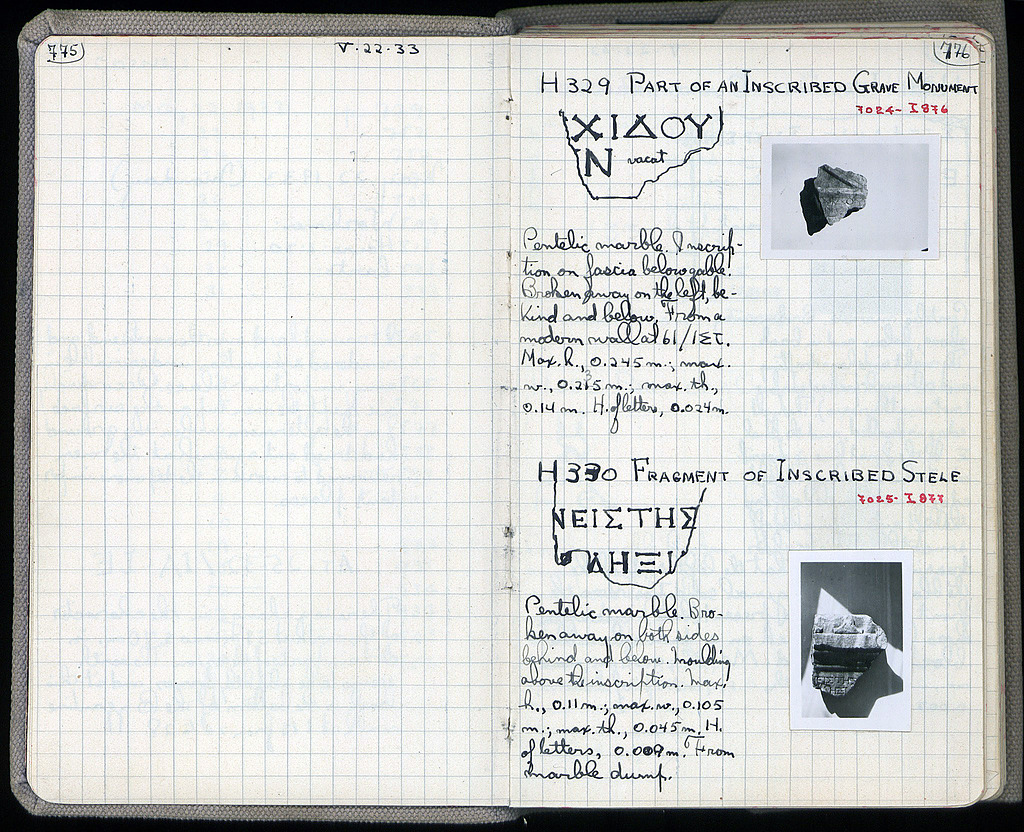 775
V·22·33
776
H 329 PART OF AN INSCRIBED GRAVE MONUMENT
7024- I 876
ΧΙΔΟΥ
Ν vacat
Pentelic marble. Inscrip-
tion, on fascia below gable.
Broken away on the left, be-
hind and below. From a
modern wall at 61/ΙΣΤ.
Max. h., 0.245 m.; max.
w., 0.235 m.; max. th.,
0.14 m. H. of letters, 0.024 m.
H 330 FRAGMENT OF INSCRIBED STELE
7025- I 877
ΝΕΙΣΤΗΣ
ΛΗΞΙ
Pentelic marble. Bro-
ken away on both sides
behind and below. Moulding
above the inscription. Max.
h., 0.11 m.; max. w., 0.105
m.; max. th., 0.045 m. H.
of letters, 0.009 m. From
marble dump.